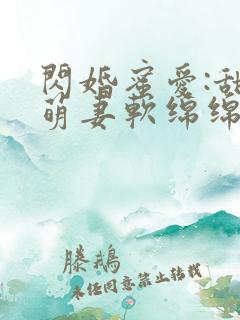 閃婚蜜愛:甜
萌妻軟绵绵
滕鵝
未任同意禁止转载